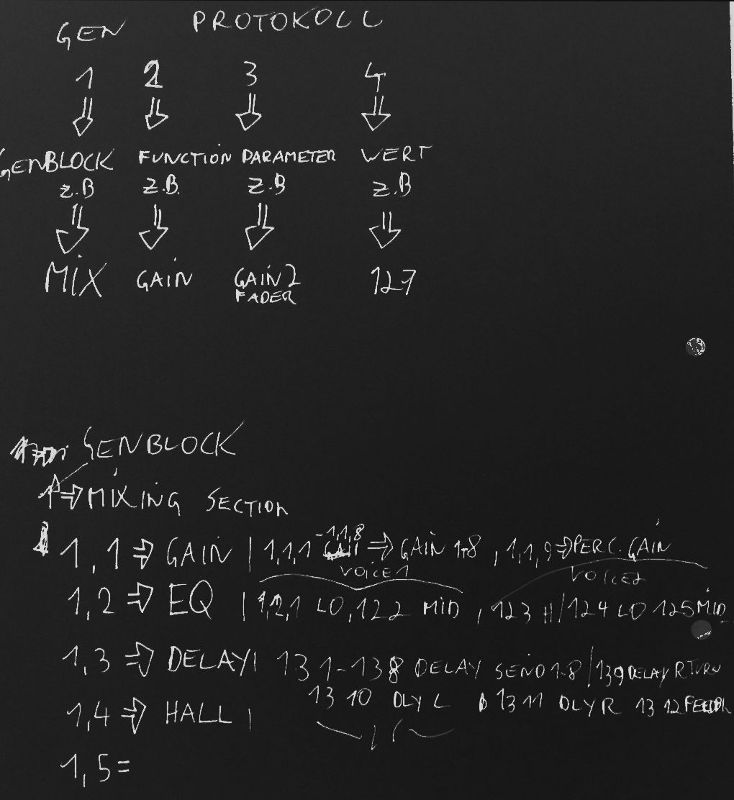 GEN PROTOKOLL
1 2 3 4
GENBLOCK FUNCTION PARAMETER WERT
z.B z.B. z.B z.B
MIX GAIN GAIN 2 127
FADER
GENBLOCK
1 ⇒ MIXING SECTION
1,1 ⇒ GAIN | 1,1,1 -1,1,8 ⇒ GAIN 1-8 , 1,1,9 ⇒ PERC. GAIN
VOICE 1 VOICE 2
1,2 ⇒ EQ | 1,2,1 LO, 122 MID , 123 HI/124 LO 125 MID
1,3 ⇒ DELAY | 131-138 DELAY SEND 1-8 / 139 DELAY RTURN
1310 DLY L 1311 DLY R 1312
1,4 ⇒ HALL |
1,5=